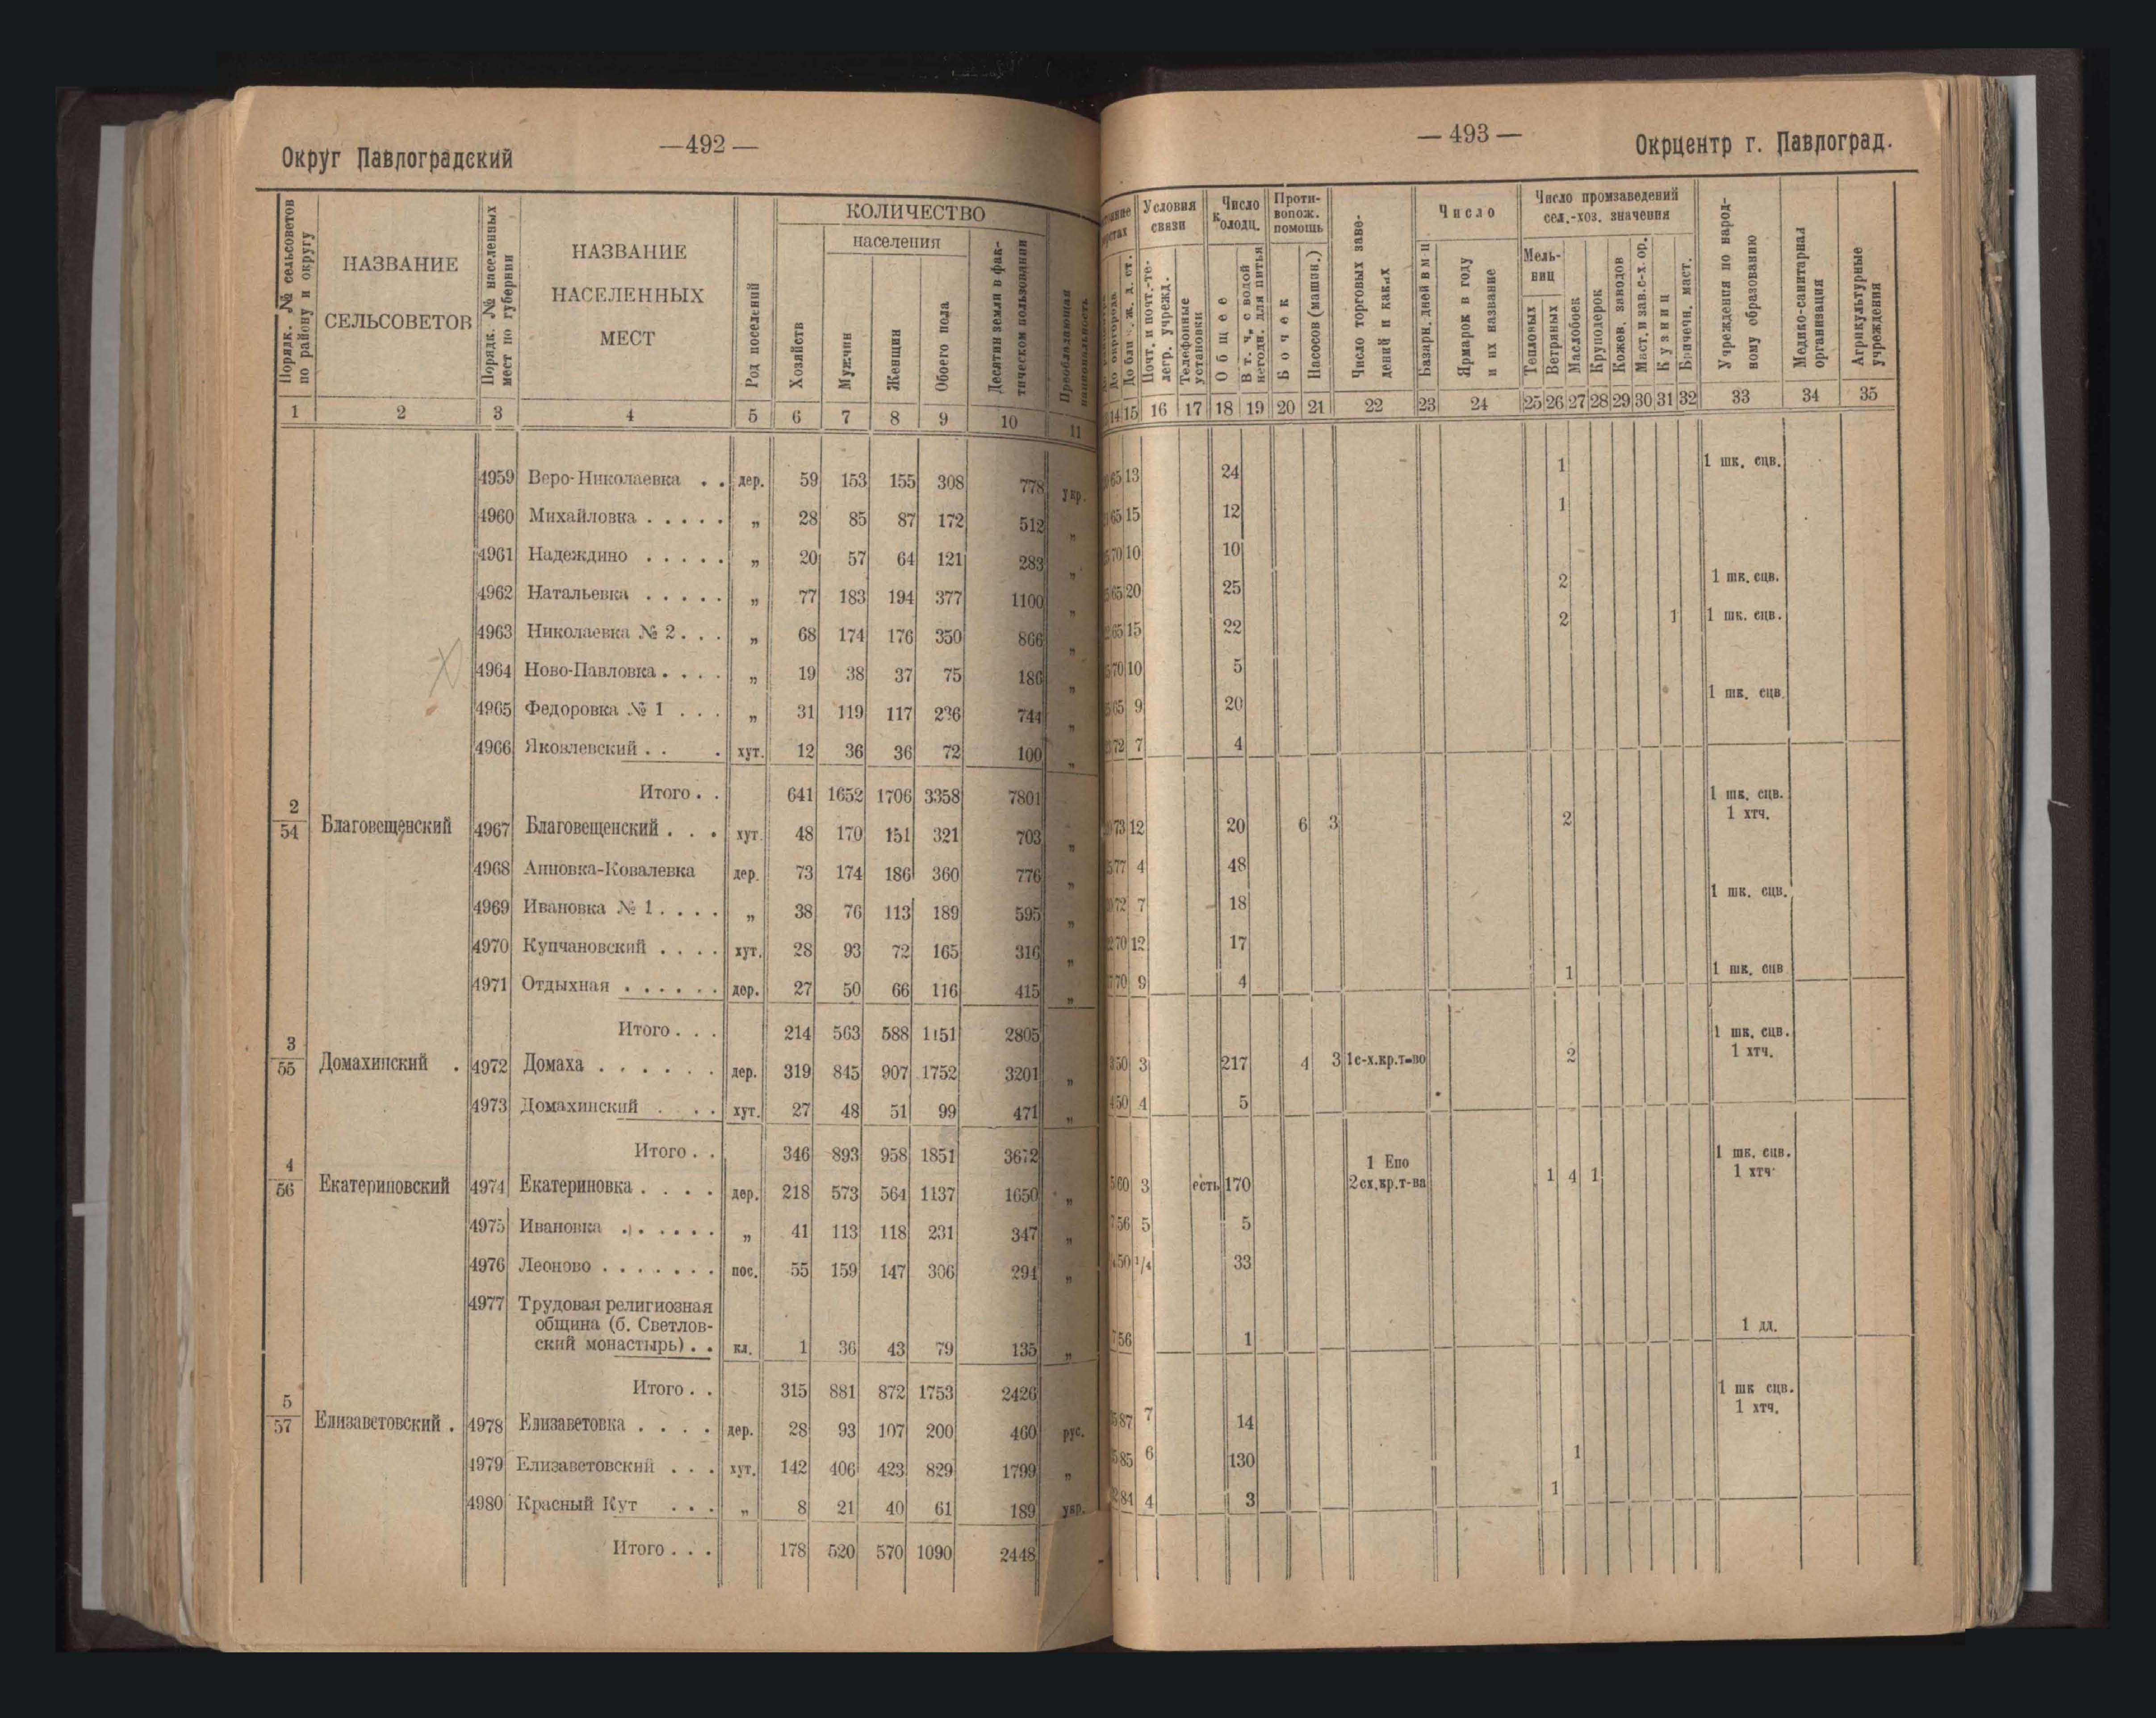 Округ Павлоградский
—492—
КОЛИЧЕСТВО
населения
Порядк. №№ сельсоветов по району и округу
НАЗВАНИЕ СЕЛЬСОВЕТОВ
Порядк. №№ населенных мест по губернии
НАЗВАНИЕ НАСЕЛЕННЫХ МЕСТ
Род поселений
Хозяйств
Мужчин
Женщин
Обоего пола
Десятин земли в фактическом пользовании
Преобладающая национальность
1 2 3 4 5 6 7 8 9 10 11
4959 Веро-Николаевка . . дер. 59 153 155 308 778 укр.
4960 Михайловка . . . . . „ 28 85 87 172 512 „
4961 Надеждино . . . . . „ 20 57 64 121 283 „
4962 Натальевка . . . . . „ 77 183 194 377 1100 „
4963 Николаевка № 2 . . . „ 68 174 176 350 866 „
4964 Ново-Павловка . . . . „ 19 38 37 75 186 „
4965 Федоровка № 1 . . . „ 31 119 117 236 744 „
4966 Яковлевский . . . хут. 12 36 36 72 100 „
Итого . . 641 1652 1706 3358 7801
2/54 Благовещенский 4967 Благовещенский . . . хут. 48 170 151 321 703 „
4968 Анновка-Ковалевка дер. 73 174 186 360 776 „
4969 Ивановка № 1 . . . . „ 38 76 113 189 595 „
4970 Купчановский . . . . хут. 28 93 72 165 316 „
4971 Отдыхная . . . . . . дер. 27 50 66 116 415 „
Итого . . . 214 563 588 1151 2805
3/55 Домахинский . 4972 Домаха . . . . . . дер. 319 845 907 1752 3201 „
4973 Домахинский . . . хут. 27 48 51 99 471 „
Итого . . 346 893 958 1851 3672
4/56 Екатериновский 4974 Екатериновка . . . . дер. 218 573 564 1137 1650 „
4975 Ивановка . . . . . . „ 41 113 118 231 347 „
4976 Леоново . . . . . . . пос. 55 159 147 306 294 „
4977 Трудовая религиозная
община (б. Светлов-
ский монастырь) . . кл. 1 36 43 79 135 „
Итого . . 315 881 872 1753 2426
5/57 Елизаветовский . 4978 Елизаветовка . . . . дер. 28 93 107 200 460 рус.
4979 Елизаветовский . . . хут. 142 406 423 829 1799 „
4980 Красный Кут . . . „ 8 21 40 61 189 укр.
Итого . . . 178 520 570 1090 2448
— 493 —
Окрцентр г. Павлоград.
Условия связи
Число колодц.
Противопож. помощь
Число
Число промзаведений сел.-хоз. значения
Мельниц
Почт. и почт.-телегр. учрежд.
Телефонные установки
Общее
В т. ч. с водой негодн. для питья
Бочек
Насосов (машин.)
Число торговых заведений и каких
Базарн. дней в м-ц
Ярмарок в году и их название
Тепловых
Ветряных
Маслобоек
Круподерок
Кожев. заводов
Маст. и зав. с-х. ор.
Кузниц
Бричечн. маст.
Учреждения по народному образованию
Медико-санитарная организация
Агрикультурные учреждения
14 15 16 17 18 19 20 21 22 23 24 25 26 27 28 29 30 31 32 33 34 35
65 13 24 1 1 шк. сцв.
65 15 12 1
70 10 10
65 20 25 2 1 шк. сцв.
65 15 22 2 1 1 шк. сцв.
70 10 5
65 9 20 1 шк. сцв.
72 7 4
1 шк. сцв.
73 12 20 6 3 2 1 хтч.
77 4 48
72 7 18 1 шк. сцв.
70 12 17
70 9 4 1 1 шк. сцв
1 шк. сцв.
50 3 217 4 3 1с-х.кр.т-во 2 1 хтч.
50 4 5
1 Епо 1 шк. сцв.
60 3 есть 170 2сх.кр.т-ва 1 4 1 1 хтч
56 5 5
50 1/4 33
56 1 1 дд.
1 шк сцв.
87 7 14 1 хтч.
85 6 130 1
84 4 3 1